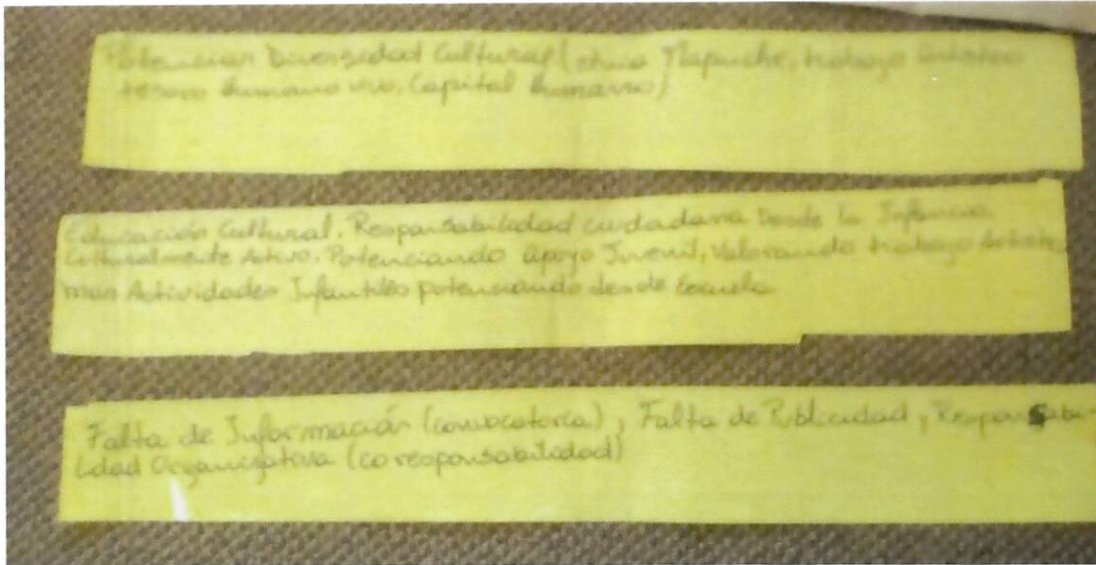 Potenciar Diversidad Cultural (etnia Mapuche, trabajo Artístico
tesoro humano vivo, Capital humano)
Educación Cultural. Responsabilidad ciudadana Desde la Infancia
Culturalmente Activo. Potenciando apoyo Juvenil, Valorando trabajo Artist
mas Actividades Infantiles potenciando desde Escuela
Falta de Información (convocatoria), Falta de Publicidad, Responsabi-
lidad Organizativa (co responsabilidad)